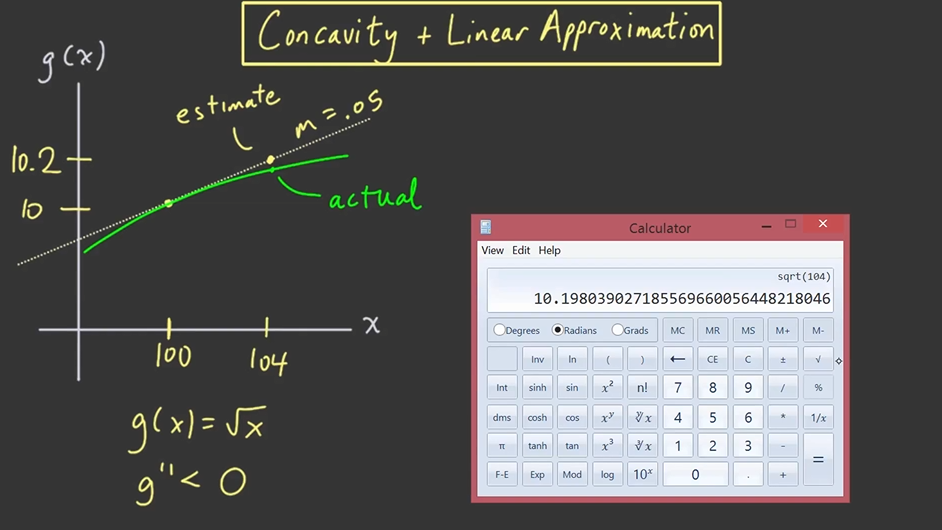 Concavity + Linear Approximation
g(x)
estimate
m = .05
10.2
10
actual
x
100
104
g(x) = √x
g'' < 0
Calculator
View Edit Help
sqrt(104)
10.198039027185569660056448218046
Degrees Radians Grads MC MR MS M+ M-
Inv ln ( ) ← CE C ± √
Int sinh sin x² n! 7 8 9 / %
dms cosh cos xʸ ʸ√x 4 5 6 * 1/x
π tanh tan x³ ³√x 1 2 3 - =
F-E Exp Mod log 10ˣ 0 . +